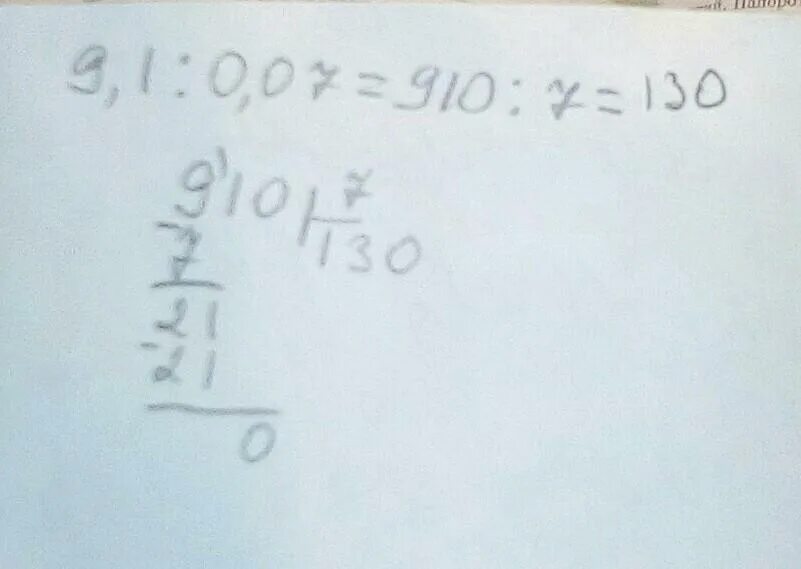 9,1 : 0,07 = 910 : 7 = 130
910 | 7
7 130
21
21
0